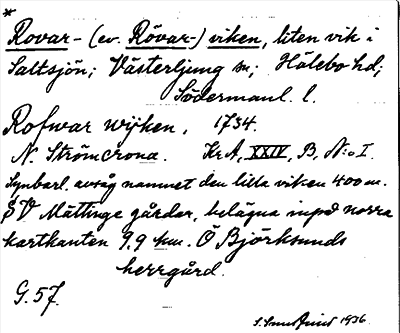 *
Rovar- (ev. Rövar-) viken, liten vik i
Saltsjön; Västerljung sn; Hölebo hd;
Södermanl. l.
Rofwar wijken, 1734.
N. Strömcrona. Kr.A, XXIV, B, N:o I.
Synbarl. avsåg namnet den lilla viken 400 m.
SV Mättinge gårdar, belägna inpå norra
kartkanten 9,9 km. Ö Björksunds
herrgård.
G. 57.
1936